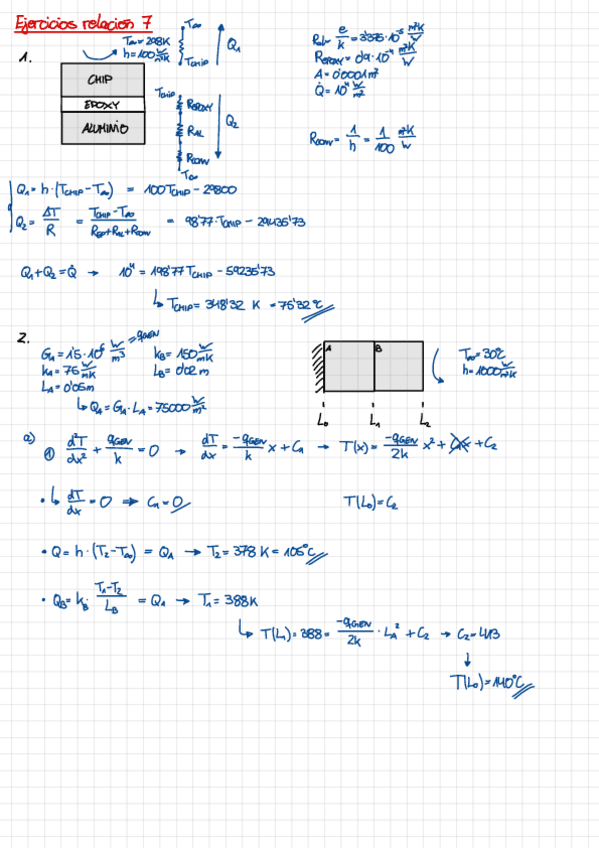 Ejercicios relación 7
1.
T∞ = 298K
h = 100 W/m²K
CHIP
EPOXY
ALUMINIO
T∞
TCHIP
Q1
TCHIP
REPOXY
RAL
RCONV
T∞
Q2
RAL = e/k = 3'375·10⁻⁵ m²K/W
REPOXY = 0'9·10⁻⁴ m²K/W
A = 0'0001 m²
Q̇ = 10⁴ W/m²
RCONV = 1/h = 1/100 m²K/W
Q1 = h·(TCHIP - T∞) = 100 TCHIP - 29800
Q2 = ΔT/R = (TCHIP - T∞)/(REP + RAL + RCONV) = 98'77·TCHIP - 29435'73
Q1 + Q2 = Q̇ → 10⁴ = 198'77 TCHIP - 59235'73
↳ TCHIP = 348'32 K = 75'32 ℃
2.
GA = 1'5·10⁶ W/m³ = qGEN
kA = 75 W/mK
LA = 0'05m
kB = 150 W/mK
LB = 0'02 m
↳ QA = GA·LA = 75000 W/m²
A
B
L0
L1
L2
T∞ = 30℃
h = 1000 W/m²K
a)
① d²T/dx² + qGEN/k = 0 → dT/dx = -qGEN/k x + C1 → T(x) = -qGEN/2k x² + C1x + C2
• ↳ dT/dx = 0 ⇒ C1 = 0
T(L0) = C2
• Q = h·(T2 - T∞) = QA → T2 = 378 K = 105℃
• QB = kB · (T1 - T2)/LB = QA → T1 = 388K
↳ T(L1) = 388 = -qGEN/2k · LA² + C2 → C2 = 413
↓
T(L0) = 140℃